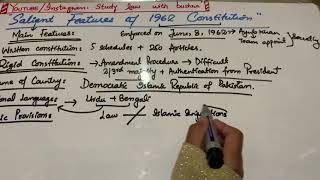 YouTube/Instagram: Study law with bushra
"Salient Features of 1962 Constitution"
Main Features: Enforced on June, 8, 1962 → Ayub Khan
Team appoint
Written constitution: 5 schedules + 250 Articles.
Rigid Constitution: → Amendment Procedure → Difficult
2/3rd majority + Authentication from President
Name of Country: Democratic Islamic Republic of Pakistan.
National Languages: → Urdu + Bengali
ic Provisions Law Islamic